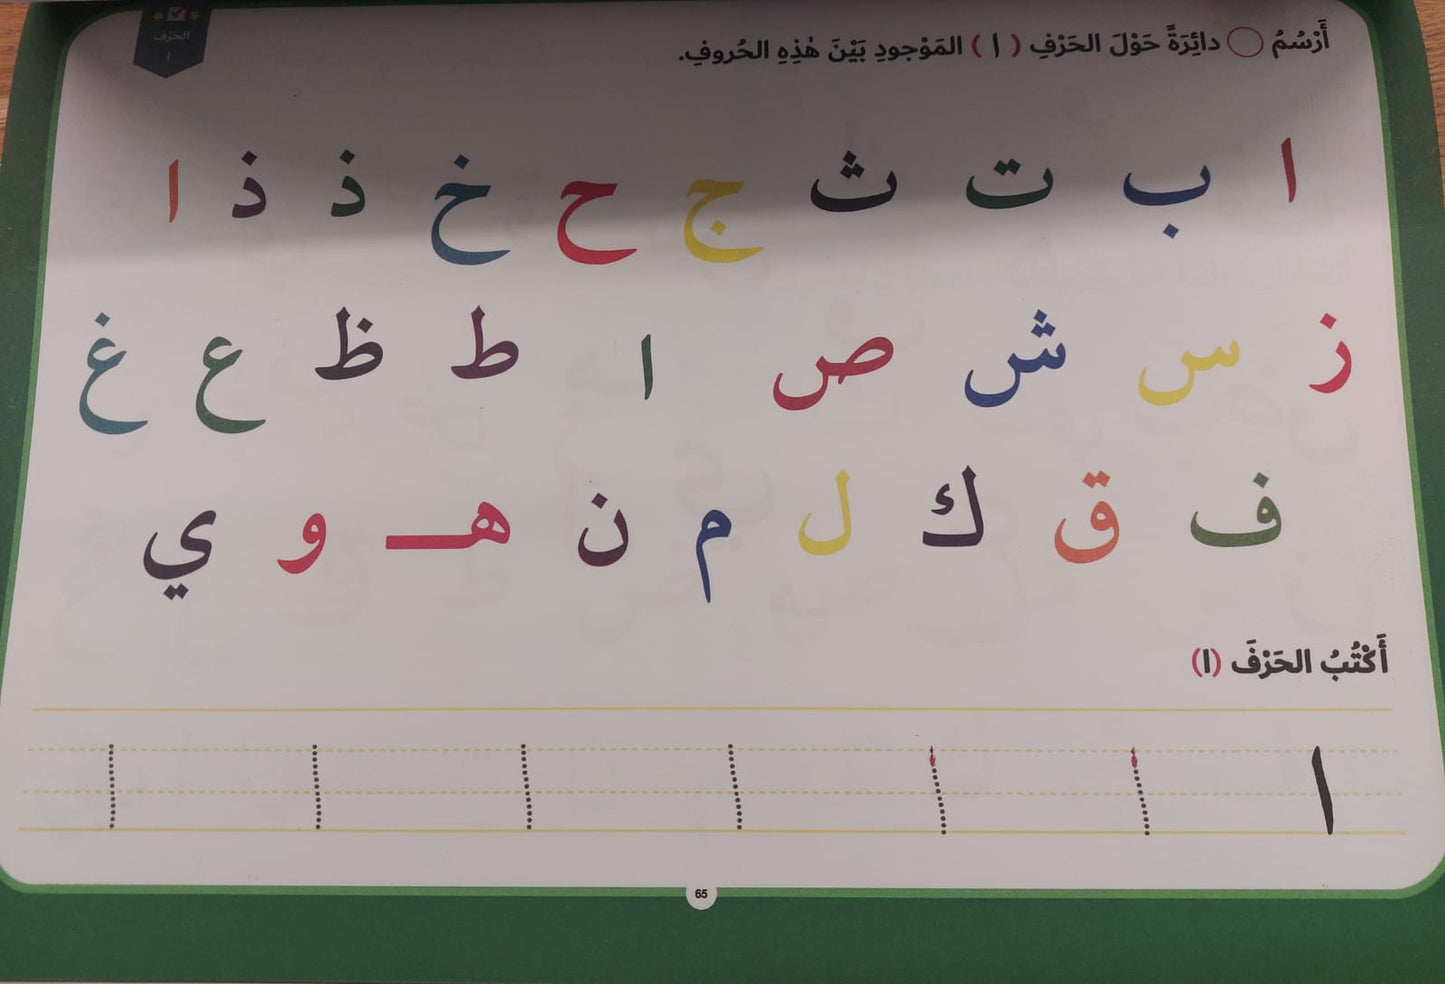 الحَرْف
ا
أَرْسُمُ دائِرَةً حَوْلَ الحَرْفِ ( ا ) المَوْجودِ بَيْنَ هٰذِهِ الحُروفِ.
ا ب ت ث ج ح خ ذ ذ ا
ز س ش ص ا ط ظ ع غ
ف ق ك ل م ن هـ و ي
أَكْتُبُ الحَرْفَ (ا)
ا ا ا ا ا ا ا
65